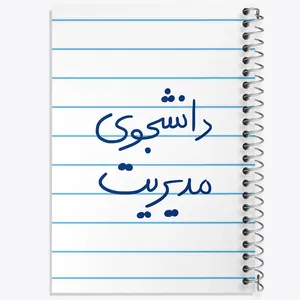 دانشجوی
مدیریت